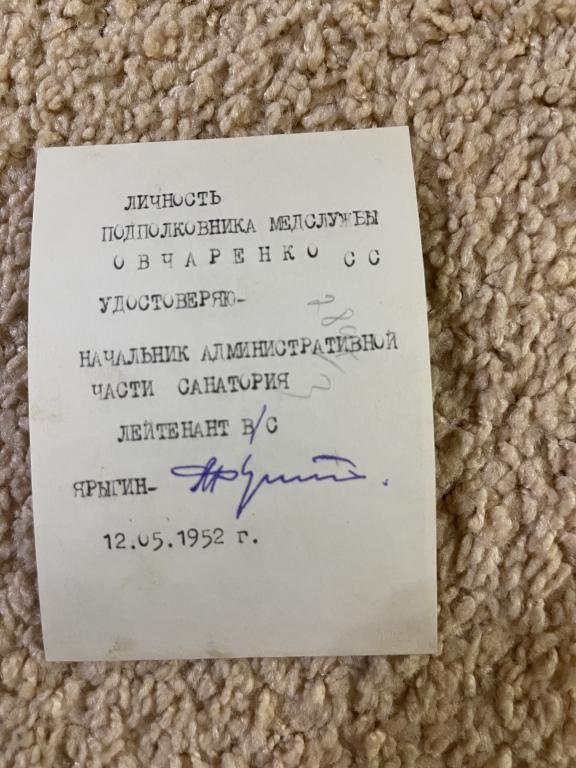 ЛИЧНОСТЬ
ПОДПОЛКОВНИКА МЕДСЛУЖБЫ
О В Ч А Р Е Н К О С С
УДОСТОВЕРЯЮ-
НАЧАЛЬНИК АДМИНИСТРАТИВНОЙ
ЧАСТИ САНАТОРИЯ
ЛЕЙТЕНАНТ В/С
ЯРЫГИН-
12.05.1952 г.